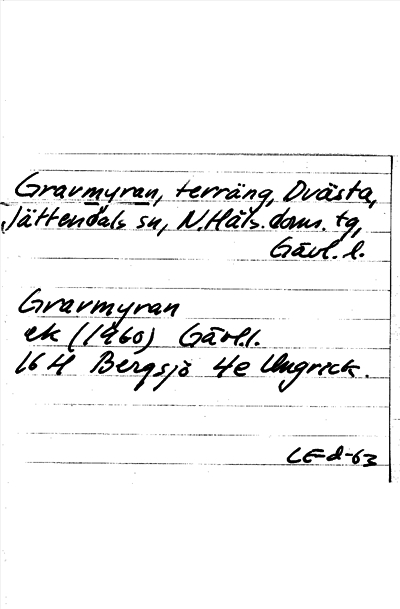 Gravmyran, terräng, Dvästa,
Jättendals sn, N.Häls. doms. tg,
Gävl. l.
Gravmyran
ek (1960) Gävl.l.
16 H Bergsjö 4e Ungrick.
LE-d-63